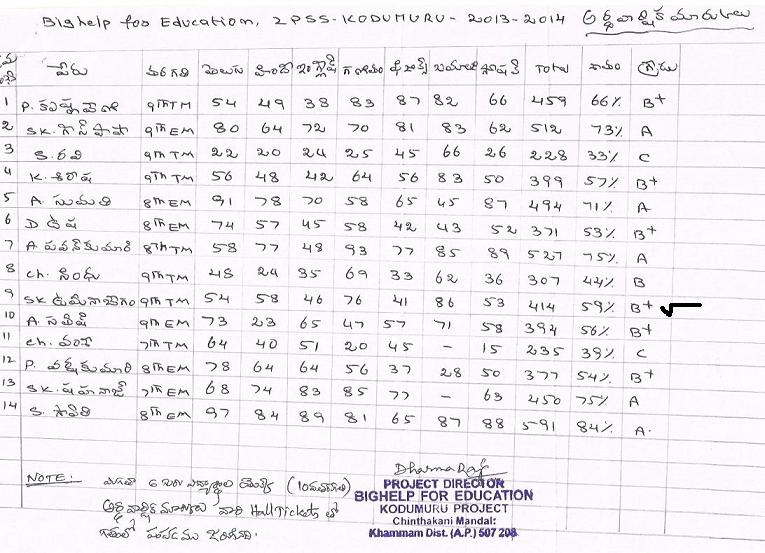 Bighelp for Education, ZPSS-KODUMURU - 2013-2014 అర్థవార్షిక మార్కులు
పేరు తరగతి తెలుగు హింది ఇంగ్లీష్ గణితం సోషల్ TOTAL శాతం గ్రేడు
1 P. కృష్ణవేణి 9th TM 54 49 38 83 87 82 66 459 66% B+
2 SK. 9th EM 80 64 72 70 81 83 62 512 73% A
3 S. రవి 9th TM 22 20 24 25 45 66 26 228 33% C
4 K. శిరీష 9th TM 56 48 42 64 56 83 50 399 57% B+
5 A. సుమతి 8th EM 91 78 70 58 65 45 87 494 71% A
6 D ఉష 8th EM 74 57 45 58 42 43 52 371 53% B+
7 A. పవన్ కుమారి 8th TM 58 77 48 93 77 85 89 527 75% A
8 Ch. సింధు 9th TM 48 24 35 69 33 62 36 307 44% B
9 SK. 9th TM 54 58 46 76 41 86 53 414 59% B+ √
10 A. 9th EM 73 23 65 47 57 71 58 394 56% B+
11 Ch. 7th TM 64 40 51 20 45 - 15 235 39% C
12 P. 8th EM 78 64 64 56 37 28 50 377 54% B+
13 SK. షహనాజ్ 7th EM 68 74 83 85 77 - 63 450 75% A
14 S. 8th EM 97 84 89 81 65 87 88 591 84% A.
DharmaRaj
NOTE: మిగతా 6 గురు విద్యార్థుల (10వతరగతి)
PROJECT DIRECTOR
BIGHELP FOR EDUCATION
అర్థ వార్షిక మార్కులు వారి Hall Tickets తో
KODUMURU PROJECT
Chinthakani Mandal:
గతంలో పంపడము జరిగినది.
Khammam Dist. (A.P.) 507 208